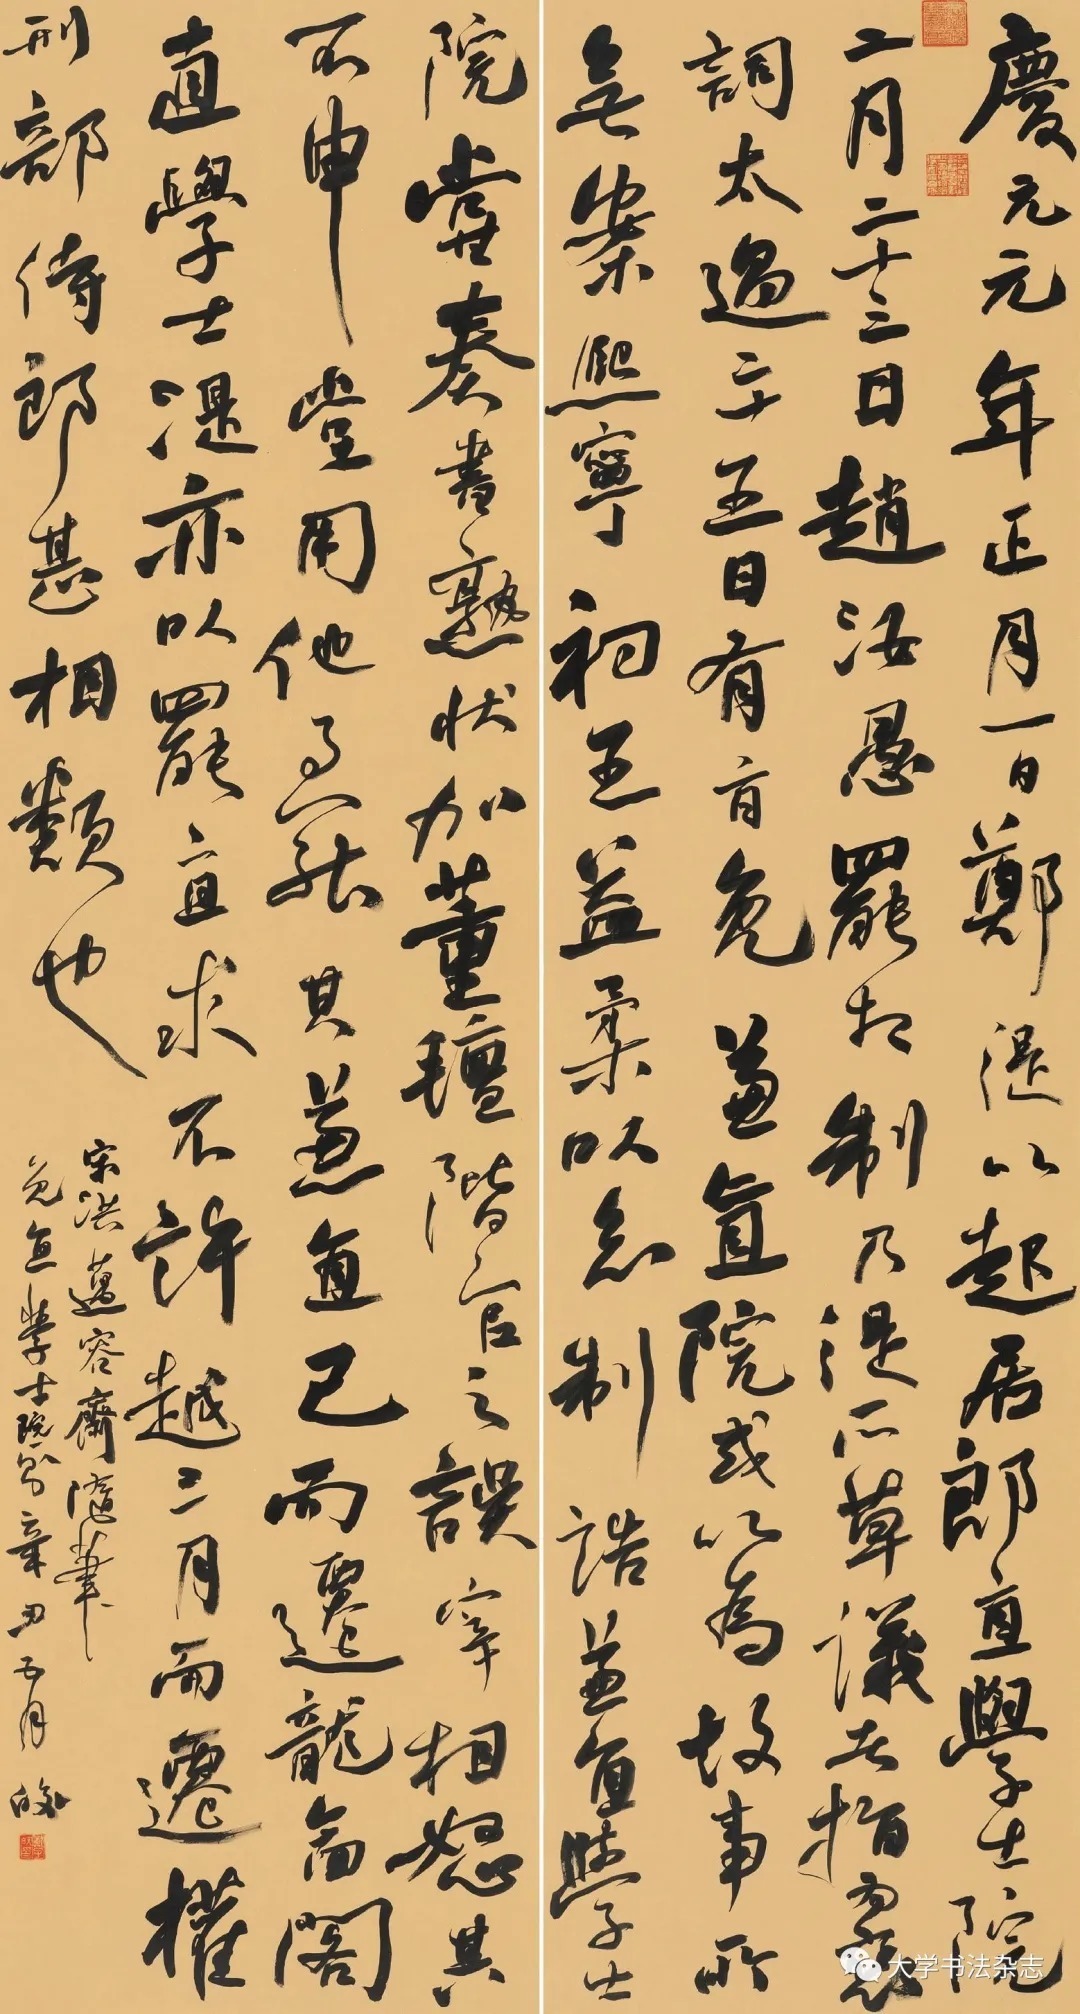 慶元元年正月一日鄭湜以起居郎直學士院
二月二十三日趙汝愚罷相制乃湜所草議者指為褒
詞太過二十五日有旨免兼直院或以為故事所
無案熙寧初王益柔以知制誥兼直學士
院嘗奏書熟狀加董氊階官之誤宰相怒其
不申堂用他事罷其兼直已而遷龍圖閣
直學士湜亦以罷直求不許越三月而遷權
刑部侍郎甚相類也
宋洪邁容齋隨筆
免直學士院 辛丑五月
大学书法杂志